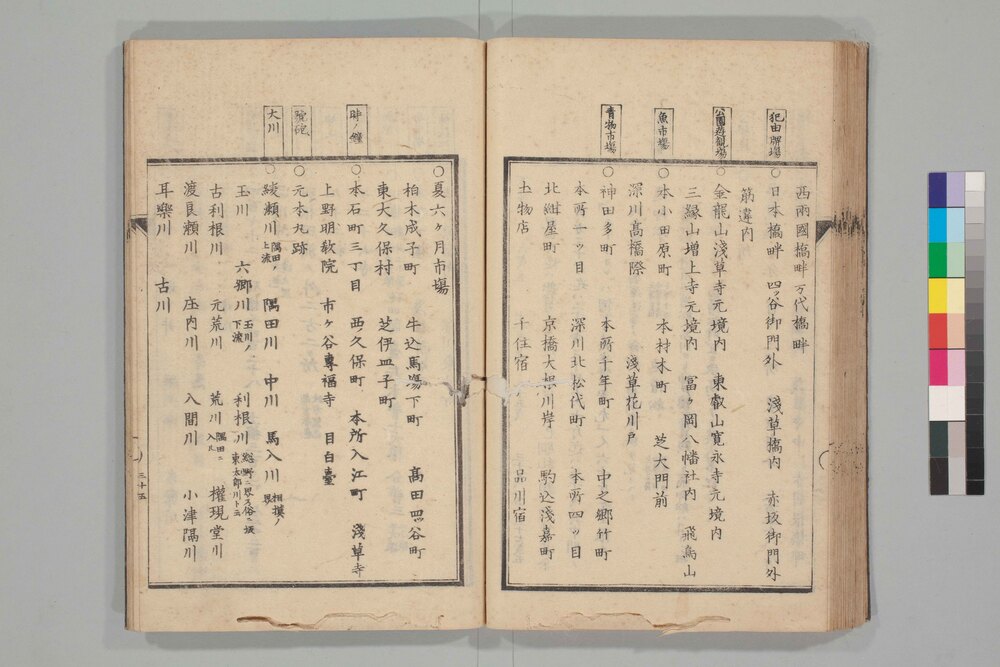 西兩國橋畔 万代橋畔
犯由牌場
○日本橋畔 四ッ谷御門外 淺草橋内 赤坂御門外
筋違内
公園遊観場
○金龍山淺草寺元境内 東叡山寛永寺元境内
三縁山増上寺元境内 冨ヶ岡八幡社内 飛鳥山
魚市場
○本小田原町 本材木町 芝大門前
深川髙橋際 淺草花川戸
青物市場
○神田多町 本所千年町 中之郷竹町
本所一ッ目 深川北松代町 本所四ッ目
北紺屋町 京橋大根川岸 駒込淺嘉町
土物店 千住宿 品川宿
○夏六ヶ月市場
柏木成子町 牛込馬場下町 髙田四ッ谷町
東大久保村 芝伊皿子町
時ノ鐘
○本石町三丁目 西ノ久保町 本所入江町 淺草寺
上野明教院 市ヶ谷專福寺 目白臺
號砲
○元本丸跡
大川
○綾瀬川 隅田ノ上流 隅田川 中川 馬入川 相摸ノ界
玉川 六郷川 玉川ノ下流 利根川 總野ノ界ス俗ニ坂東太郎川ト云
古利根川 元荒川 荒川 隅田ニ入ル 權現堂川
渡良瀬川 庄内川 入間川 小津隅川
耳樂川 古川
三十五